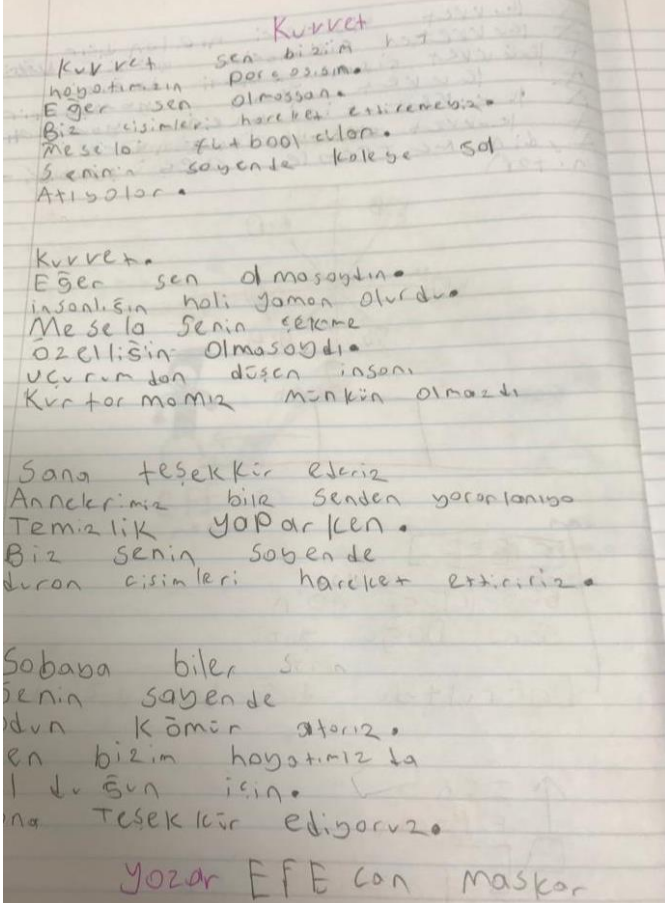 Kuvvet
Kuvvet sen bizim
hayatımızın parcasısım.
Eğer sen olmassan.
Biz cisimleri hareket ettiremebiz.
Mesela futboolcular.
Senin sayende kaleye gol
Atıyolar.
Kuvvet.
Eğer sen olmasaydın.
insanlığın hali yaman olurdu.
Mesela Senin çekme
özelliğin olmasaydı.
uçurumdan düşen insanı
Kurtarmamız münkün olmazdı
Sana teşekkür ederiz
Annelerimiz bile senden yararlanıyo
Temizlik yaparken.
Biz senin sayende
duran cisimleri hareket ettiririz.
Sobaya biler
Senin sayende
odun Kömür atarız.
en bizim hayatımızda
lduğun için.
na Teşekkür ediyoruz.
yazar EFE can maskar